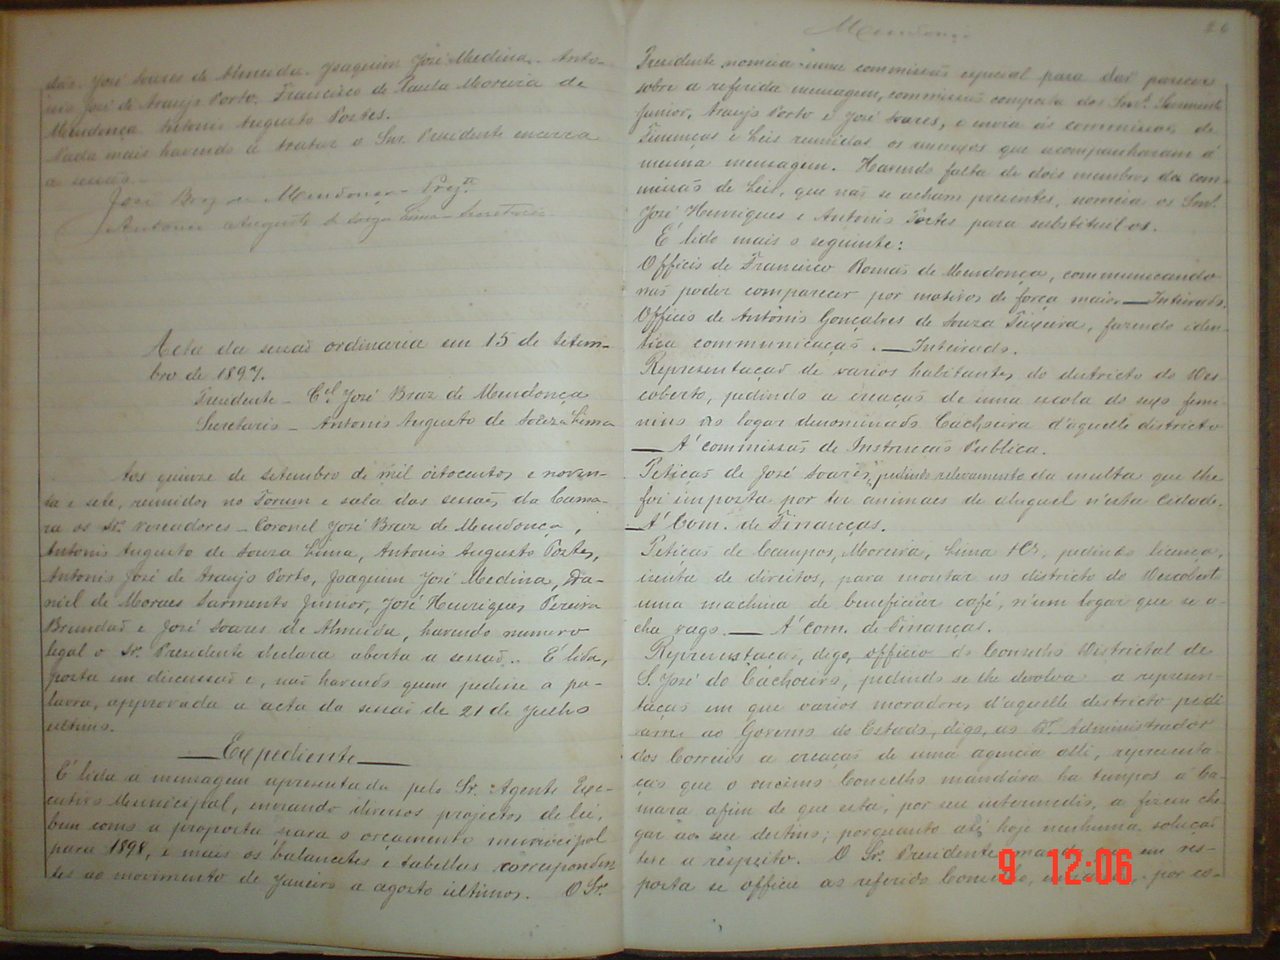 dão. José Soares de Almeida. Joaquim José Medina. Anto-
nio José de Araujo Porto. Francisco de Paula Moreira de
Mendonça. Antonio Augusto Portes.
Nada mais havendo a tratar o Snr. Presidente encerra
a sessão.
José Braz de Mendonça - Presid.te
Antonio Augusto de Souza Lima - Secretario
Acta da sessão ordinaria em 15 de Setem-
bro de 1897.
Presidente - Cel. José Braz de Mendonça
Secretario - Antonio Augusto de Souza Lima
Aos quinze de setembro de mil oitocentos e noven-
ta e sete, reunidos no Forum e sala das sessões da Cama-
ra os Srs. Vereadores - Coronel José Braz de Mendonça,
Antonio Augusto de Souza Lima, Antonio Augusto Portes,
Antonio José de Araujo Porto, Joaquim José Medina, Da-
niel de Moraes Sarmento Junior, José Henriques Pereira
Brandão e José Soares de Almeida, havendo numero
legal o Sr. Presidente declara aberta a sessão. É lida,
posta em discussão e, não havendo quem pedisse a pa-
lavra, approvada a acta da sessão de 21 de Julho
ultimo.
Expediente
É lida a mensagem apresentada pelo Sr. Agente Exe-
cutivo Municipal, enviando diversos projectos de lei,
bem como a proposta para o orçamento municipal
para 1898, e mais os balancetes e tabellas correspondem
tes ao movimento de Janeiro a agosto ultimos. O Sr.
Mendonça
26
Presidente nomeia uma commissão especial para dar parecer
sobre a referida mensagem, commissão composta dos Snrs. Sarmento
Junior, Araujo Porto e José Soares, e envia ás commissões de
Finanças e Leis reunidas os annexos que acompanharam á
mesma mensagem. Havendo falta de dois membros da com-
missão de Leis, que não se acham presentes, nomeia os Snrs.
José Henriques e Antonio Portes para substituil-os.
É lido mais o seguinte:
Officio de Francisco Romão de Mendonça, communicando
não poder comparecer por motivos de força maior. — Inteirado.
Officio de Antonio Gonçalves de Souza Teixeira, fazendo iden-
tica communicação. — Inteirado.
Representação de varios habitantes do districto do Des-
coberto, pedindo a creação de uma escola do sexo femi-
nino no logar denominado Cachoeira d'aquelle districto
— A' commissão de Instrucção Publica.
Petição de José Soares, pedindo relevamento da multa que lhe
foi imposta por ter animaes de aluguel n'esta cidade.
— A' Com. de Finanças.
Petição de Campos, Moreira, Lima & Cª, pedindo licença,
isenta de direitos, para montar no districto do Descoberto
uma machina de beneficiar café, n'um logar que se a-
cha vago. — A' Com. de Finanças.
Representação, digo, officio do Conselho Districtal de
S. José do Cachoeira, pedindo se lhe devolva a represen-
tação em que varios moradores d'aquelle districto pedi-
am ao Governo do Estado, digo, ao Dr. Administrador
dos Correios a creação de uma agencia alli, representa-
ção que o mesmo Conselho mandára ha tempos á Ca-
mara afim de que esta, por seu intermedio, a fizesse che-
gar ao seu destino; porquanto até hoje nenhuma solução
teve a respeito. O Sr. Presidente manda em res-
posta se officie ao referido Conselho, por co-
9 12:06